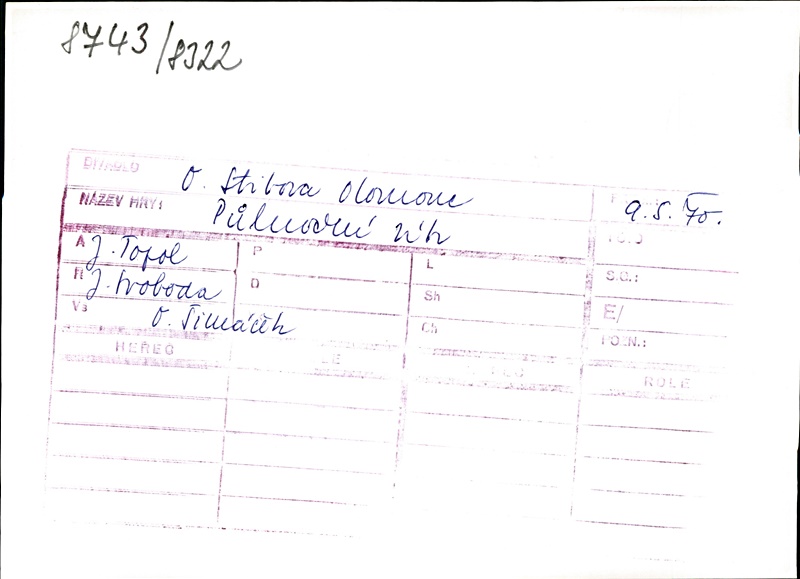 8743/8322
DIVADLO O. Stibora Olomouc 9.5.70.
NÁZEV HRY: Půlnoční vítr
A J. Topol P L S.C.:
R J. Svoboda D Sh E/
Vs O. Šimáček Ch POZN.:
HEREC ROLE